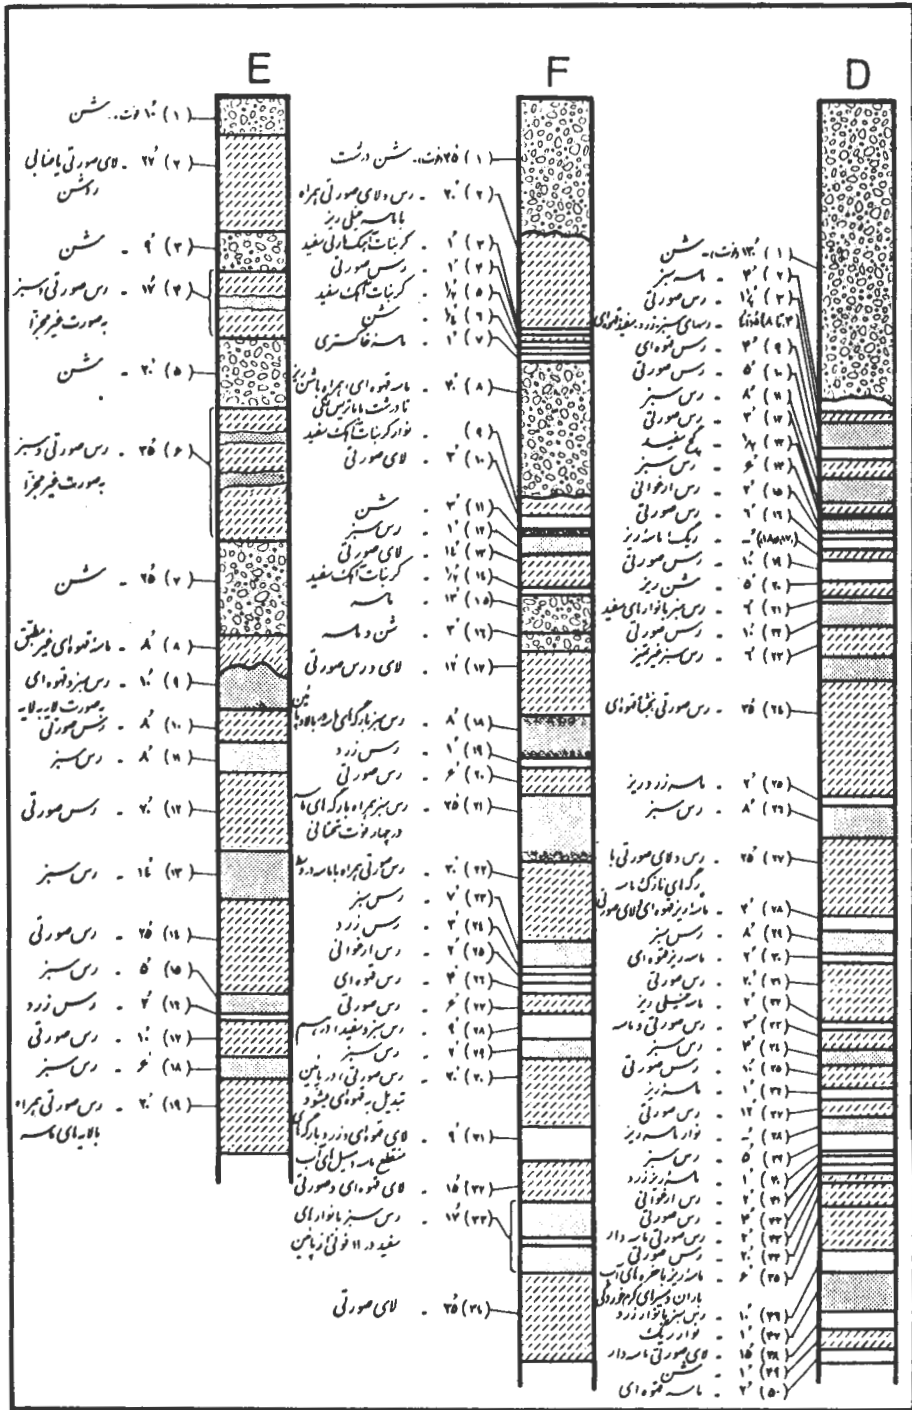 E
(۱) ۱۰′ فوت - شن
(۲) ۲۷′ - لای صورتی با خالی
روشن
(۳) ۹′ - شن
(۴) ۱۷′ - رس صورتی و سبز
به صورت غیر مجزا
(۵) ۲۰′ - شن
(۶) ۳۵′ - رس صورتی و سبز
به صورت غیر مجزا
(۷) ۲۵′ - شن
(۸) ۸′ - ماسه قهوه‌ای غیر مطبق
(۹) ۱۰′ - رس سبز و قهوه‌ای
به صورت لایه به لایه
(۱۰) ۸′ - رس صورتی
(۱۱) ۸′ - رس سبز
(۱۲) ۲۰′ - رس صورتی
(۱۳) ۱۴′ - رس سبز
(۱۴) ۲۵′ - رس صورتی
(۱۵) ۵′ - رس سبز
(۱۶) ۲′ - رس زرد
(۱۷) ۱۰′ - رس صورتی
(۱۸) ۶′ - رس سبز
(۱۹) ۲۰′ - رس صورتی همراه
با لایه‌های ماسه
F
(۱) ۳۵′ فوت - شن درشت
(۲) ۲۰′ - رس و لای صورتی همراه
با ماسه خیلی ریز
(۳) ۱′ - کربنات آهک مارنی سفید
(۴) ۱′ - رس صورتی
(۵) ۱/۲′ - کربنات آهک سفید
(۶) ۱/۴′ - شن
(۷) ۱′ - ماسه خاکستری
(۸) ۳۰′ - ماسه قهوه‌ای، همراه با شن ریز
تا درشت با ماتریس آهکی
(۹) - نوار کربنات آهک سفید
(۱۰) ۳′ - لای صورتی
(۱۱) ۳′ - شن
(۱۲) ۱′ - رس سبز
(۱۳) ۱۴′ - لای صورتی
(۱۴) ۱/۲′ - کربنات آهک سفید
(۱۵) ۱۳′ - ماسه
(۱۶) ۳′ - شن و ماسه
(۱۷) ۱۲′ - لای و رس صورتی
(۱۸) ۸′ - رس سبز با رگه‌های ماسه در بالا و پائین
(۱۹) ۱′ - رس زرد
(۲۰) ۶′ - رس صورتی
(۲۱) ۲۵′ - رس سبز همراه با رگه‌های ماسه
در چهار فوت تحتانی
(۲۲) ۲۰′ - رس صورتی همراه با ماسه
(۲۳) ۷′ - رس سبز
(۲۴) ۳′ - رس زرد
(۲۵) ۲′ - رس ارغوانی
(۲۶) ۴′ - رس قهوه‌ای
(۲۷) ۶′ - رس صورتی
(۲۸) ۹′ - رس سبز و سفید در هم
(۲۹) ۲′ - رس سبز
(۳۰) ۲۰′ - رس صورتی، در پائین
تبدیل به قهوه‌ای میشود
(۳۱) ۹′ - لای قهوه‌ای و زرد با رگه‌های
منقطع ماسه و سیل‌های آب
(۳۲) ۱۵′ - لای قهوه‌ای و صورتی
(۳۳) ۱۷′ - رس سبز با نوارهای
سفید در ۱۱ فوتی از پائین
(۳۴) ۳۵′ - لای صورتی
D
(۱) ۱۳۰′ فوت - شن
(۲) ۴′ - ماسه سبز
(۳) ۱/۴′ - رس صورتی
(۴ تا ۸) - رسهای سبز، زرد، سفید، قهوه‌ای
(۹) ۴′ - رس قهوه‌ای
(۱۰) ۵′ - رس صورتی
(۱۱) ۸′ - رس سبز
(۱۲) ۳′ - رس صورتی
(۱۳) ۱/۲′ - گچ سفید
(۱۴) ۶′ - رس سبز
(۱۵) ۲′ - رس ارغوانی
(۱۶) ۶′ - رس صورتی
(۱۷،۱۸) - ریگ، ماسه ریز
(۱۹) ۱۰′ - رس صورتی
(۲۰) ۵′ - شن ریز
(۲۱) ۶′ - رس سبز با نوارهای سفید
(۲۲) ۱۰′ - رس صورتی
(۲۳) ۶′ - رس سبز غیر متمیز
(۲۴) ۳۵′ - رس صورتی بخشاً قهوه‌ای
(۲۵) ۲′ - ماسه زرد و ریز
(۲۶) ۸′ - رس سبز
(۲۷) ۲۵′ - رس و لای صورتی با
رگه‌های نازک ماسه
(۲۸) ۴′ - ماسه ریز قهوه‌ای و لای صورتی
(۲۹) ۸′ - رس سبز
(۳۰) ۲′ - ماسه ریز قهوه‌ای
(۳۱) ۲۰′ - رس صورتی
(۳۲) ۲′ - ماسه خیلی ریز
(۳۳) ۳′ - رس صورتی و ماسه
(۳۴) ۴′ - رس سبز
(۳۵) ۱۰′ - رس صورتی
(۳۶) ۱′ - ماسه ریز
(۳۷) ۱۲′ - رس صورتی
(۳۸) - نوار ماسه ریز
(۳۹) ۵′ - رس سبز
(۴۰) ۱′ - ماسه ریز زرد
(۴۱) ۲′ - رس ارغوانی
(۴۲) ۴′ - رس صورتی
(۴۳) ۲′ - رس صورتی ماسه دار
(۴۴) ۲۰′ - رس صورتی
(۴۵) ۶′ - ماسه ریز با حفره‌های آب
باران و مسیرهای کرم خوردگی
(۴۶) ۱۰′ - رس سبز با نوار زرد
(۴۷) ۱′ - نوار ریگ
(۴۸) ۱۵′ - لای صورتی ماسه دار
(۴۹) ۱′ - شن
(۵۰) ۲′ - ماسه قهوه‌ای